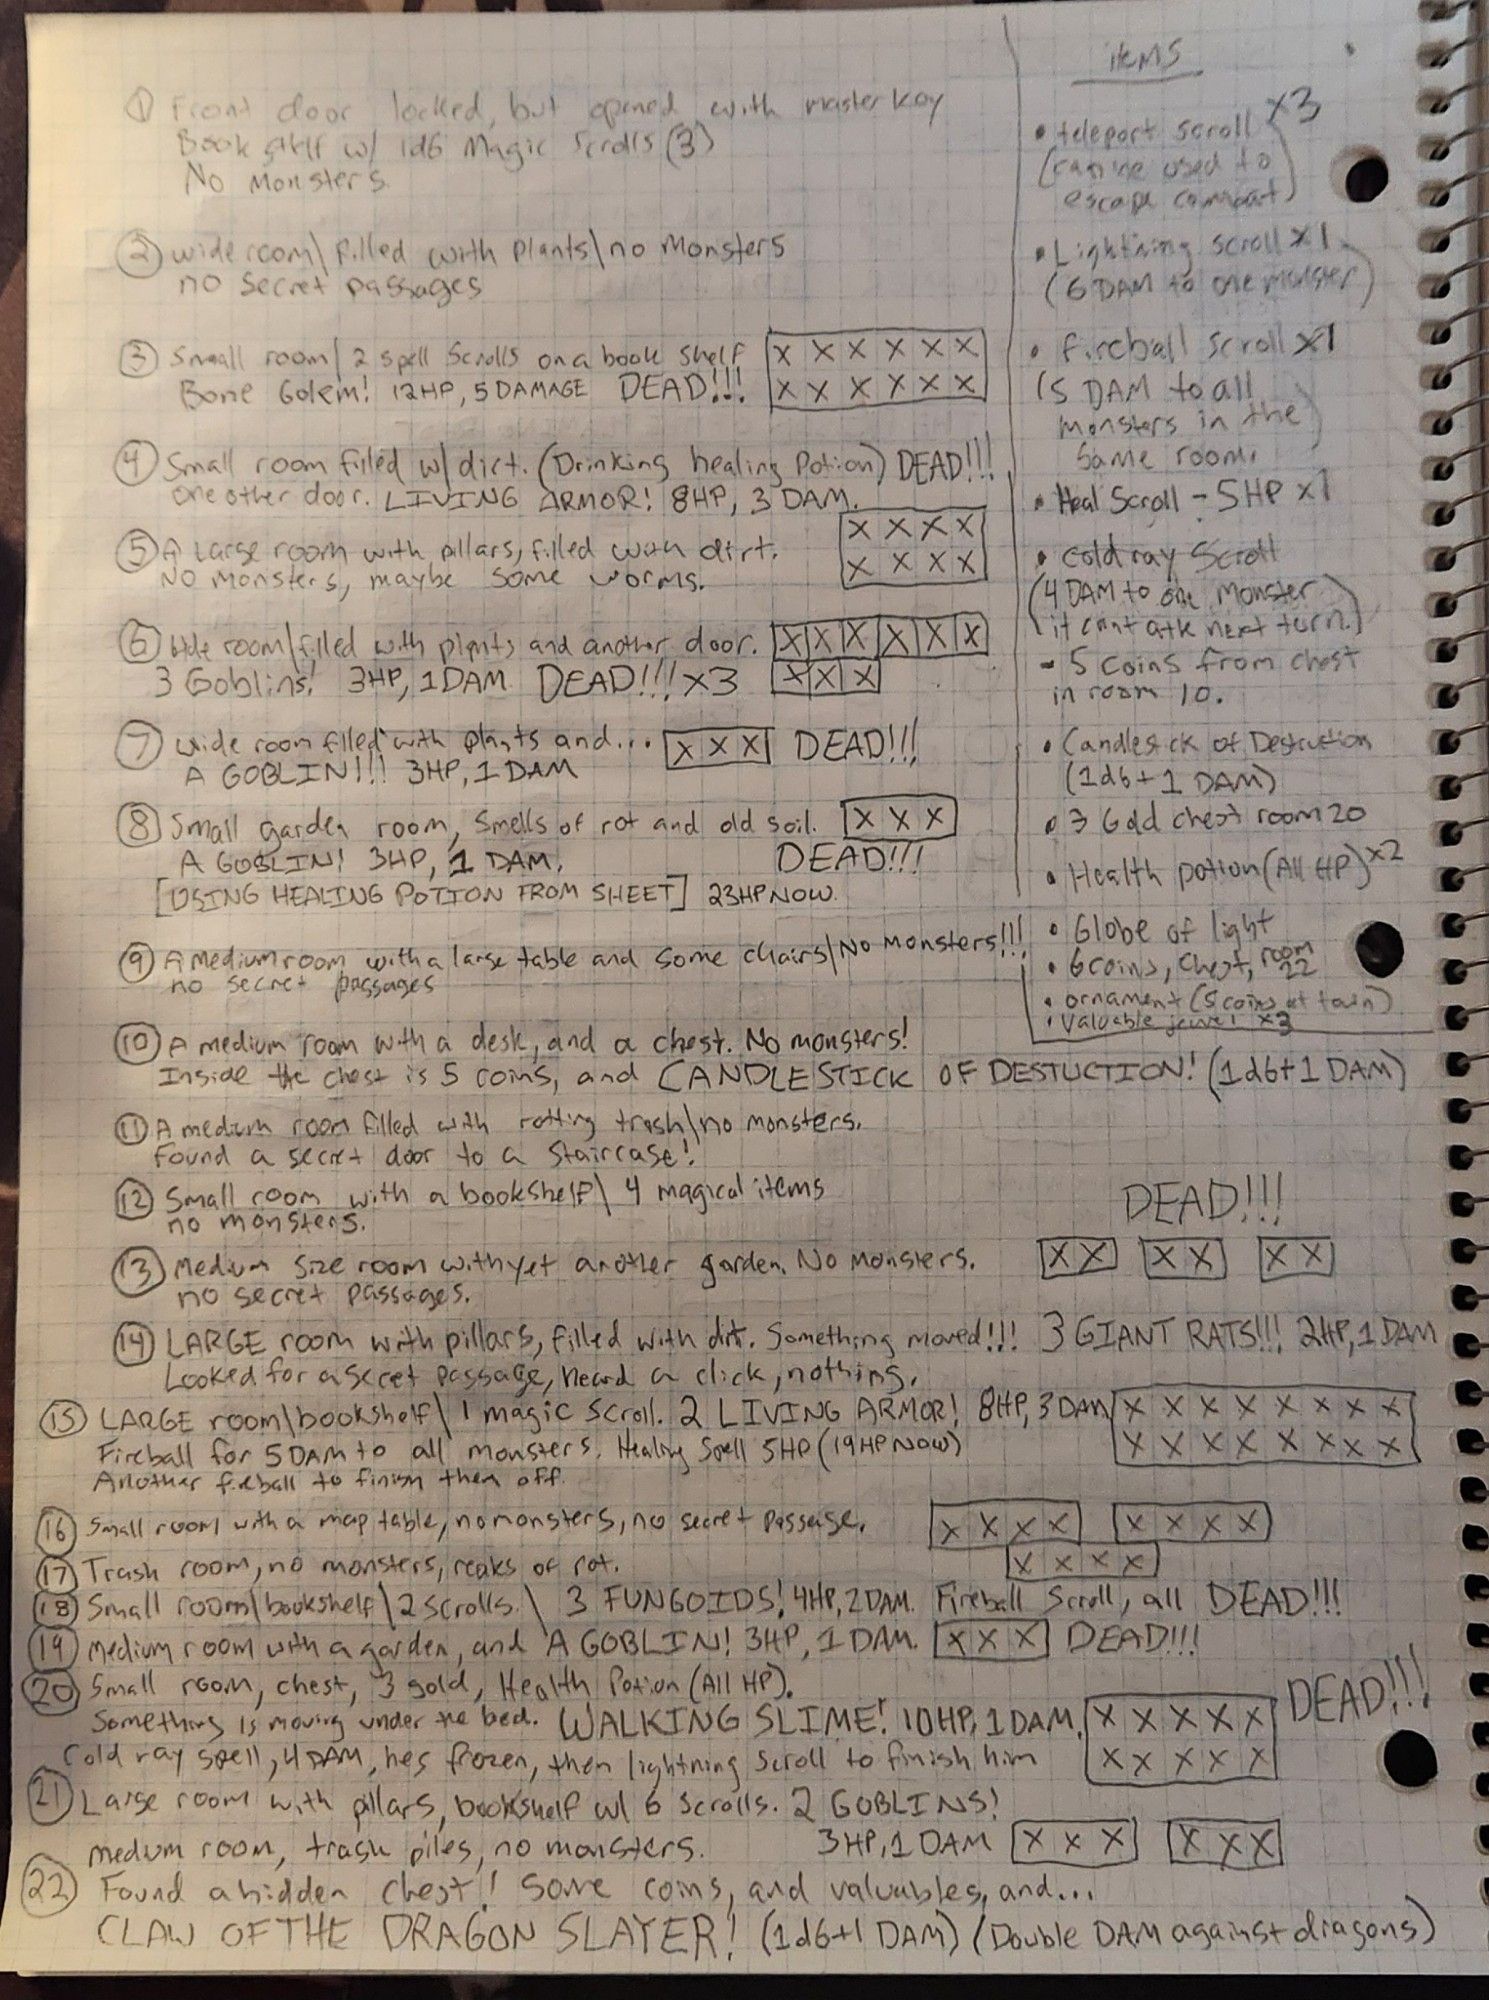 ① Front door locked, but opened with master key
Book shelf w/ 1d6 Magic Scrolls (3)
No Monsters
② wide room\ filled with plants\ no Monsters
no secret passages
③ Small room\ 2 spell Scrolls on a book shelf
Bone Golem! 12HP, 5 DAMAGE DEAD!!!
X X X X X X
X X X X X X
④ Small room filled w/ dirt. (Drinking healing Potion) DEAD!!!
one other door. LIVING ARMOR! 8HP, 3 DAM.
X X X X
X X X X
⑤ A Large room with pillars, filled with dirt.
No monsters, maybe some worms.
⑥ Wide room\ filled with plants and another door. X X X X X X
3 Goblins! 3HP, 1 DAM DEAD!!! x3 X X X
⑦ wide room filled with plants and... X X X DEAD!!!
A GOBLIN!!! 3HP, 1 DAM
⑧ Small garden room, smells of rot and old soil. X X X
A GOBLIN! 3HP, 1 DAM. DEAD!!!
[USING HEALING POTION FROM SHEET] 23HP NOW.
⑨ A medium room with a large table and some chairs\ No Monsters!!!
no secret passages
⑩ A medium room with a desk, and a chest. No monsters!
Inside the chest is 5 coins, and CANDLESTICK OF DESTUCTION! (1d6+1 DAM)
⑪ A medium room filled with rotting trash\ no monsters.
Found a secret door to a staircase!
⑫ Small room with a bookshelf\ 4 magical items
no monsters.
DEAD!!!
⑬ Medium size room with yet another garden. No Monsters. X X X X X X
no secret passages.
⑭ LARGE room with pillars, filled with dirt. Something moved!!! 3 GIANT RATS!!! 2HP, 1 DAM
Looked for a secret passage, heard a click, nothing.
⑮ LARGE room\ bookshelf\ 1 magic scroll. 2 LIVING ARMOR! 8HP, 3 DAM X X X X X X X X
Fireball for 5 DAM to all monsters. Healing Spell 5HP (19HP NOW) X X X X X X X X
Another fireball to finish them off.
⑯ Small room with a map table, no monsters, no secret passage. X X X X X X X X
⑰ Trash room, no monsters, reaks of rot. X X X X
⑱ Small room\ bookshelf\ 2 scrolls.\ 3 FUNGOIDS! 4HP, 2 DAM. Fireball Scroll, all DEAD!!!
⑲ Medium room with a garden, and A GOBLIN! 3HP, 1 DAM. X X X DEAD!!!
⑳ Small room, chest, 3 gold, Health Potion (All HP).
Something is moving under the bed. WALKING SLIME! 10HP, 1 DAM. X X X X X DEAD!!!
Cold ray spell, 4 DAM, hes frozen, then lightning scroll to finish him X X X X X
㉑ Large room with pillars, bookshelf w/ 6 scrolls. 2 GOBLINS!
3HP, 1 DAM X X X X X X
㉒ medium room, trash piles, no monsters.
Found a hidden chest! Some coins, and valuables, and...
CLAW OF THE DRAGON SLAYER! (1d6+1 DAM) (Double DAM against dragons)
items
• teleport scroll x3
(can be used to
escape combat)
• Lightning scroll x1
(6 DAM to one monster)
• Fireball scroll x1
(5 DAM to all
monsters in the
same room.
• Heal Scroll - 5HP x1
• cold ray Scroll
(4 DAM to one monster
it cant atk next turn.)
- 5 coins from chest
in room 10.
• Candlestick of Destruction
(1d6+1 DAM)
• 3 Gold chest room 20
• Health potion (All HP) x2
• Globe of light
• 6 coins, chest, room 22
• ornament (5 coins at town)
• Valuable jewel x3